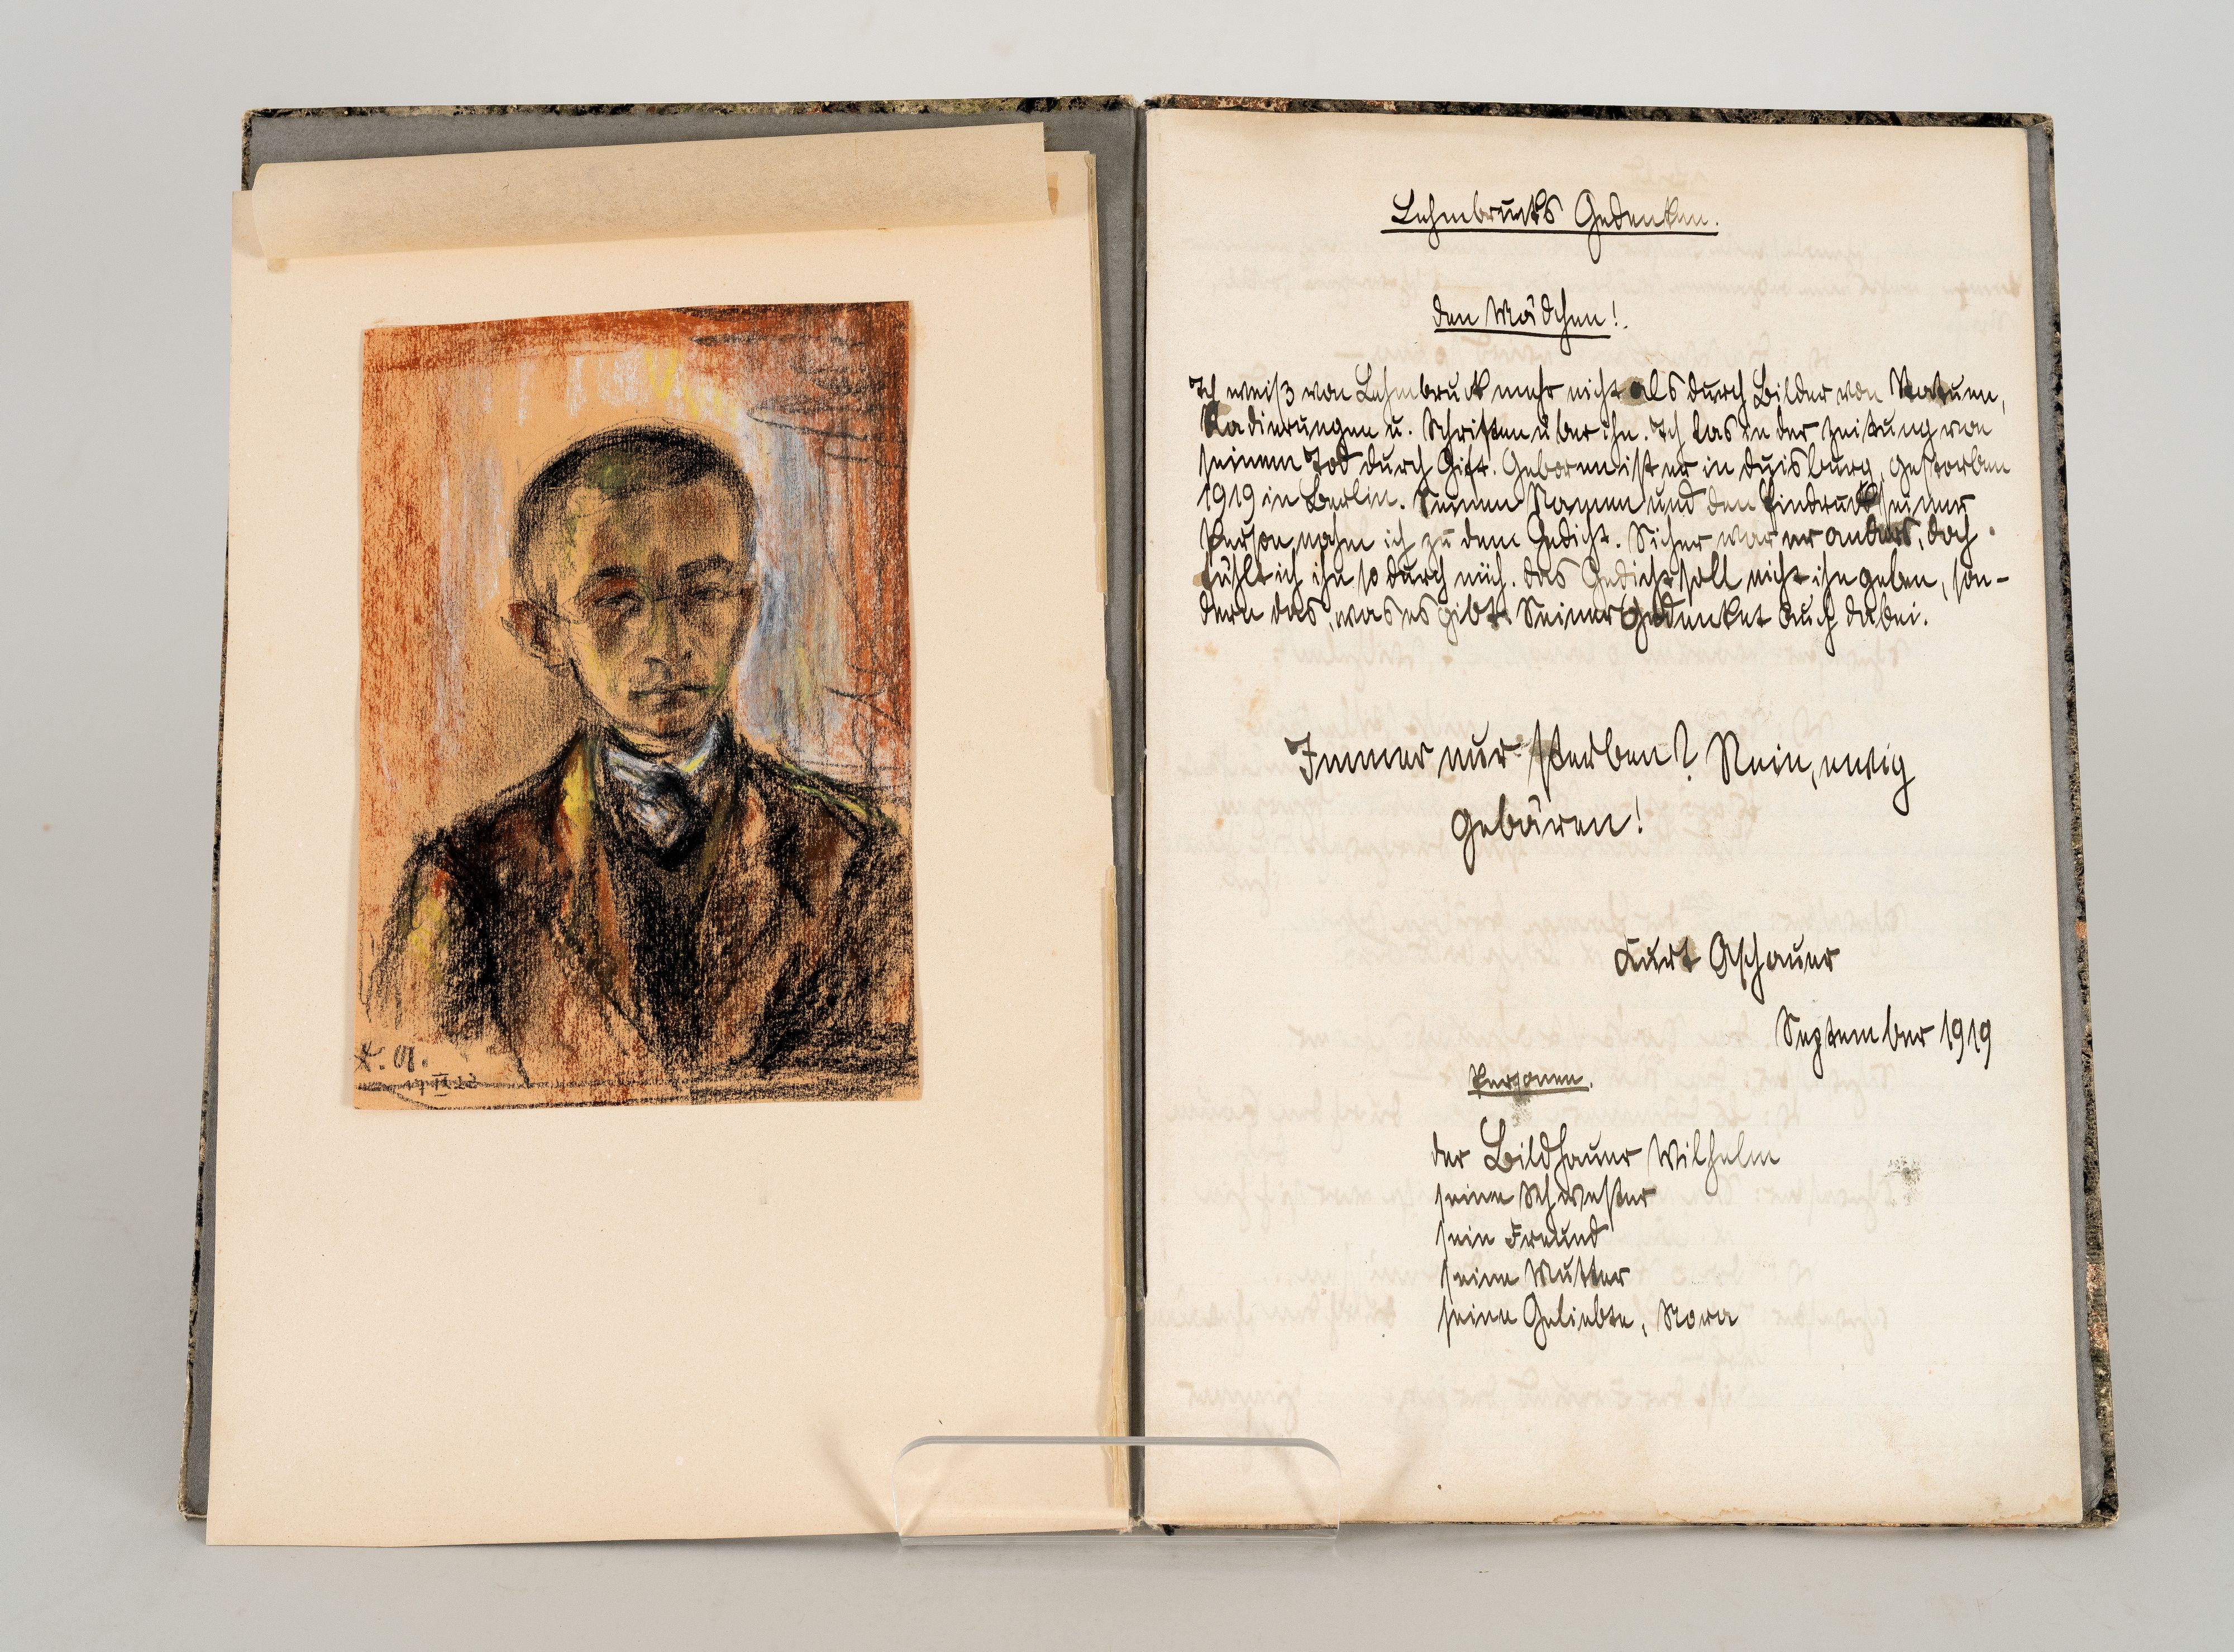 K. A.
Lehmbrucks Gedenken.
den Mädchen!
Ich weiß von Lehmbruck mehr nicht als durch Bilder von Statuen,
Radierungen u. Schriften über ihn. Ich las in der Zeitung von
seinem Tod durch Gift. Geboren ist er in Duisburg, gestorben
1919 in Berlin. Seinen Namen und den Eindruck seiner
Person nahm ich zu dem Gedicht. Sicher war er anders, doch
fühlt ich ihn so durch mich. Das Gedicht soll nicht ihn geben, son-
dern das, was es gibt. Seiner gedenket auch dabei.
Immer nur sterben? Nein, ewig
gebären!
Kurt Aschauer
September 1919
Personen.
der Bildhauer Wilhelm
seine Schwester
sein Freund
seine Mutter
seine Geliebte, Nora